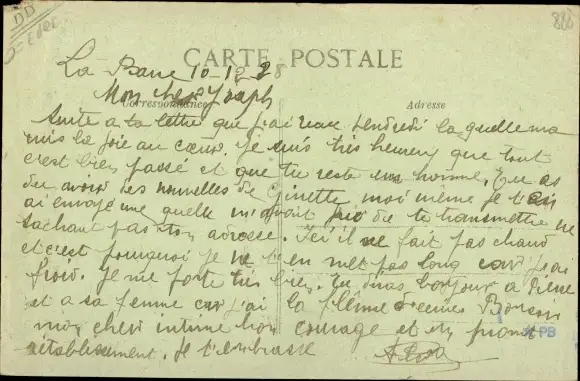 DD
CARTE POSTALE
La Barre 10-12-28
Correspondance
Adresse
Mon cher Joseph
Suite a ta lettre que j'ai reçu vendredi la quelle m'a
mis la joie au cœur. Je suis très heureux que tout
c'est bien passé et que tu reste un homme. Tu as
du avoir des nouvelles de Ginette moi même je t'en
ai envoyé une quelle m'avait prié de te transmettre ne
sachant pas ton adresse. Ici il ne fait pas chaud
et c'est pourquoi je ne t'en met pas long car j'ai
froid. Je me porte très bien. Tu diras bonjour a
et a sa femme car j'ai la flème
mon cher intime bon courage et un prompt
rétablissement. Je t'embrasse
PB